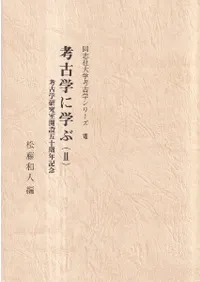 同志社大学考古学シリーズ Ⅷ
考古学に学ぶ(Ⅱ)
考古学研究室開設五十周年記念
松藤和人 編